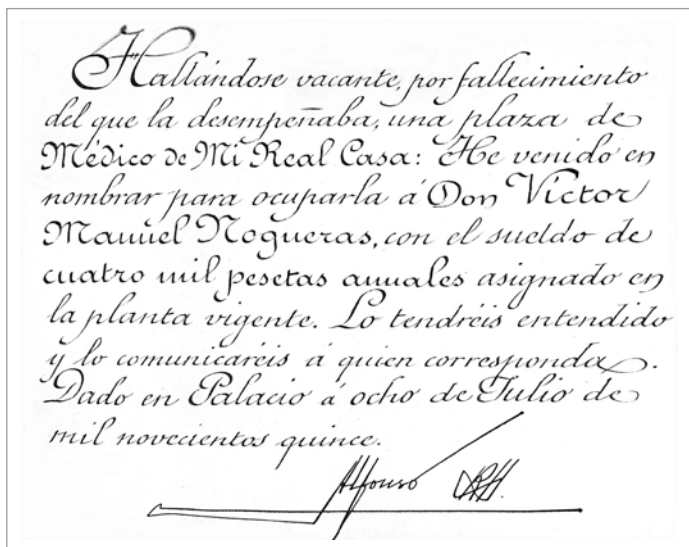 Hallándose vacante, por fallecimiento
del que la desempeñaba, una plaza de
Médico de Mi Real Casa: He venido en
nombrar para ocuparla á Don Víctor
Manuel Nogueras, con el sueldo de
cuatro mil pesetas anuales asignado en
la planta vigente. Lo tendréis entendido
y lo comunicaréis á quien corresponda.
Dado en Palacio á ocho de Julio de
mil novecientos quince.
Alfonso